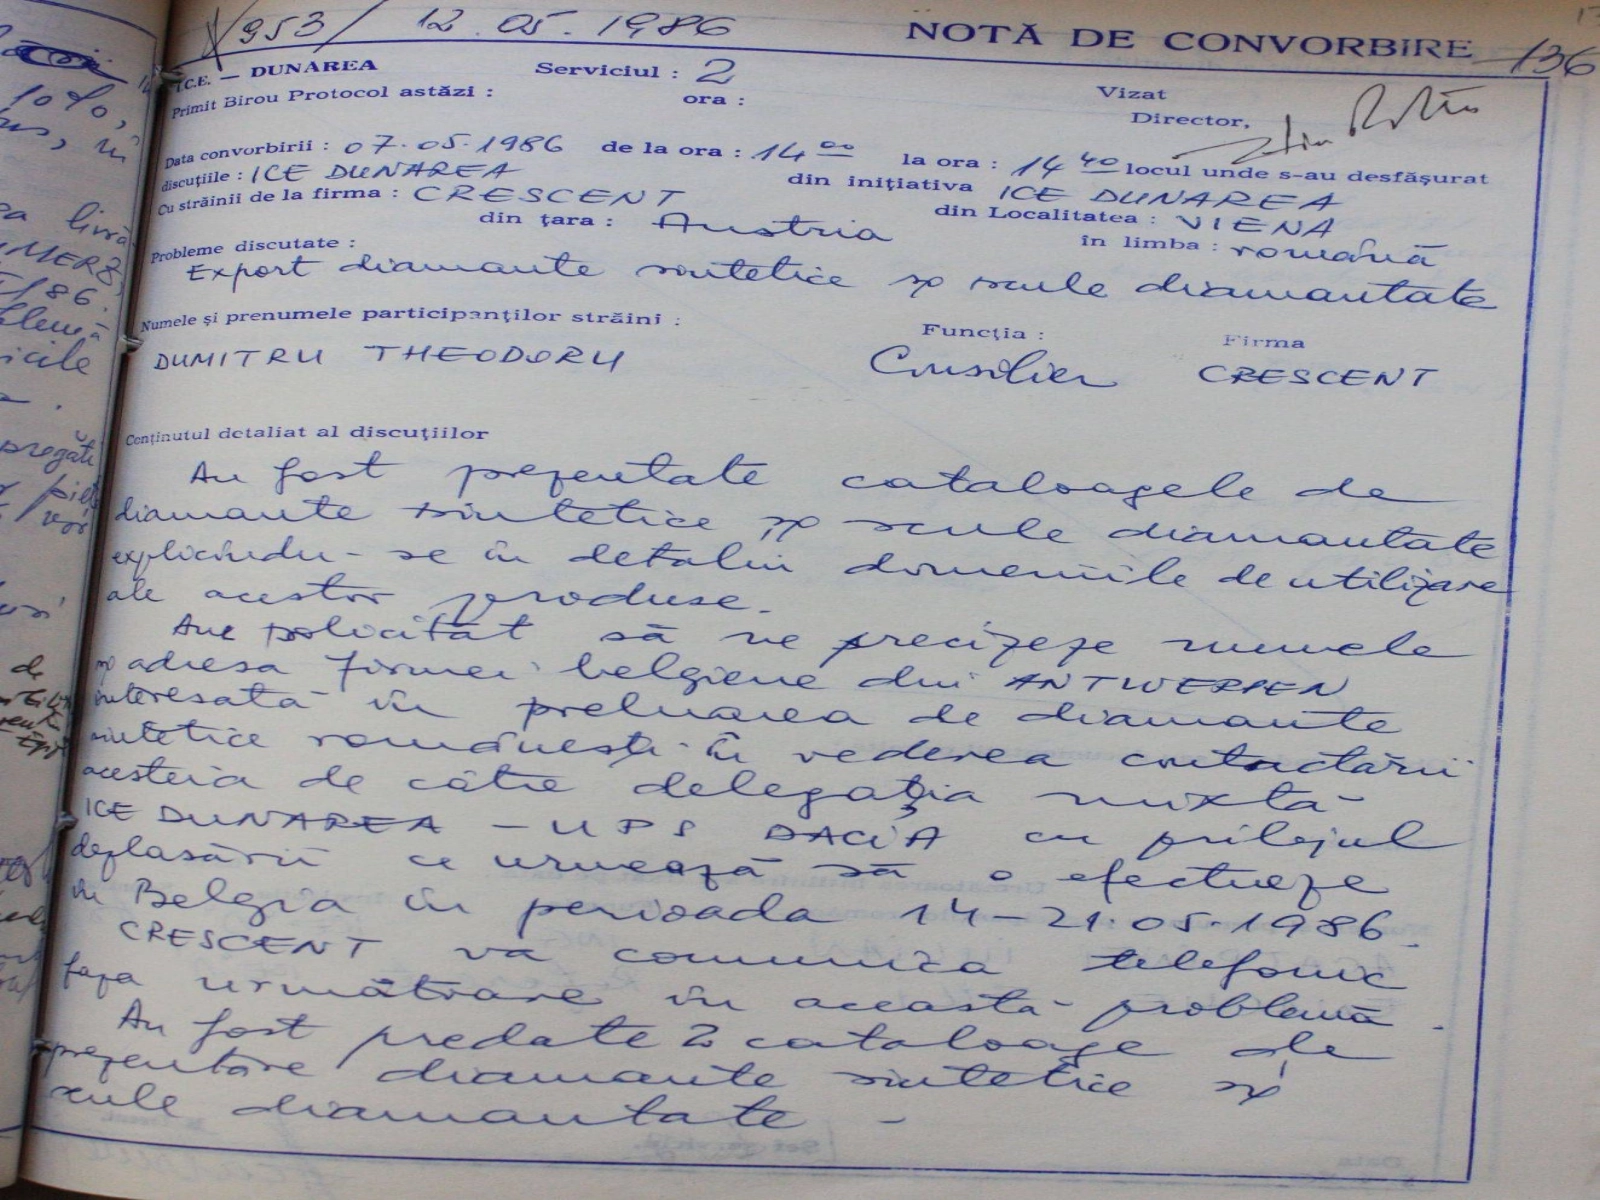 953 / 12.05.1986 NOTĂ DE CONVORBIRE 136
I.C.E. — DUNĂREA Serviciul : 2 Vizat
Primit Birou Protocol astăzi : ora : Director,
Data convorbirii : 07.05.1986 de la ora : 14 00 la ora : 14 40 locul unde s-au desfășurat
discuțiile : ICE DUNAREA din inițiativa ICE DUNAREA
Cu străinii de la firma : CRESCENT din Localitatea : VIENA
din țara : Austria în limba : română
Probleme discutate :
Export diamante sintetice și scule diamantate
Numele și prenumele participanților străini : Funcția : Firma
DUMITRU THEODORU Consilier CRESCENT
Conținutul detaliat al discuțiilor
Au fost prezentate cataloagele de
diamante sintetice și scule diamantate
explicîndu-se în detaliu domeniile de utilizare
ale acestor produse.
Am solicitat să ne precizeze numele
și adresa firmei belgiene din ANTWERPEN
interesată în preluarea de diamante
sintetice românești în vederea contactării
acesteia de către delegația mixtă
ICE DUNAREA - UPS DACIA cu prilejul
deplasării ce urmează să o efectueze
în Belgia în perioada 14-21.05.1986.
CRESCENT va comunica telefonic
faza următoare în această problemă.
Au fost predate 2 cataloage de
prezentare diamante sintetice și
scule diamantate -